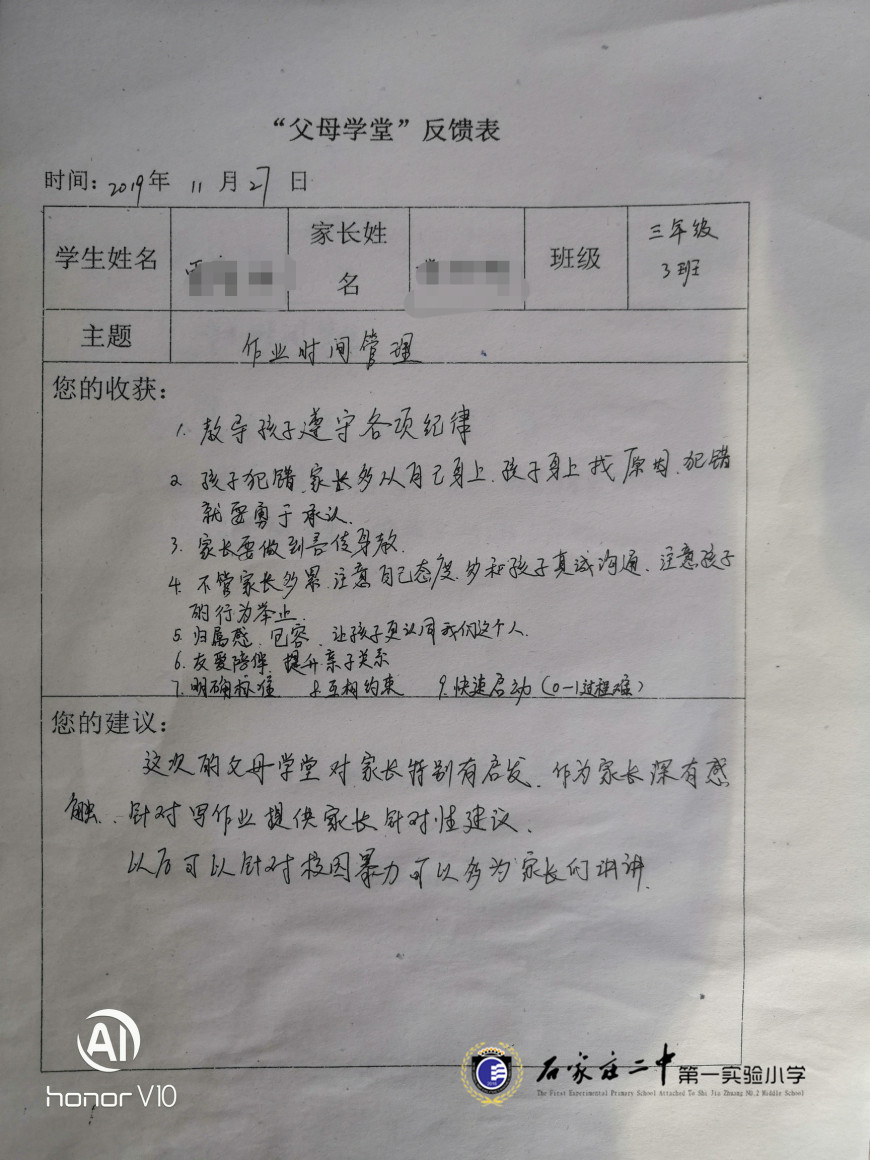 “父母学堂”反馈表
时间：2019年 11月27日
学生姓名 家长姓名 班级 三年级3班
主题 作业时间管理
您的收获：
1. 教导孩子遵守各项纪律
2. 孩子犯错、家长多从自己身上、孩子身上找原因、犯错
就要勇于承认.
3. 家长要做到言传身教.
4. 不管家长多累、注意自己态度.多和孩子真诚沟通、注意孩子
的行为举止.
5. 归属感、包容、让孩子更认同我们这个人.
6. 友爱陪伴 提升亲子关系
7. 明确标准 8.互相约束 9.快速启动（0-1过程难）
您的建议：
这次的父母学堂对家长特别有启发、作为家长深有感
触、针对写作业提供家长针对性建议.
以后可以针对校园暴力可以多为家长们讲讲.
AI
honor V10
石家庄二中 第一实验小学
The First Experimental Primary School Attached To Shi Jia Zhuang NO.2 Middle School